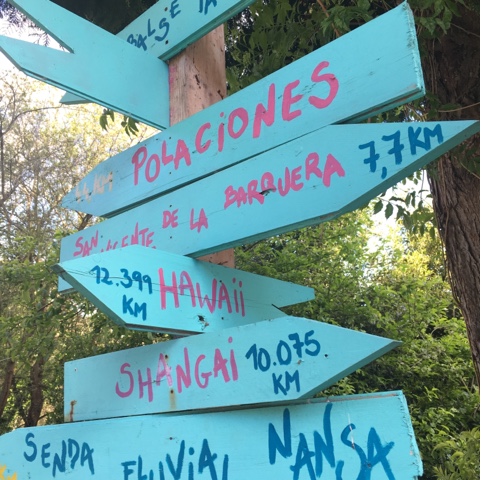 POLACIONES
SAN VICENTE DE LA BARQUERA 7,7 KM
12.399 KM HAWAII
SHANGAI 10.075 KM
SENDA FLUVIAL NANSA